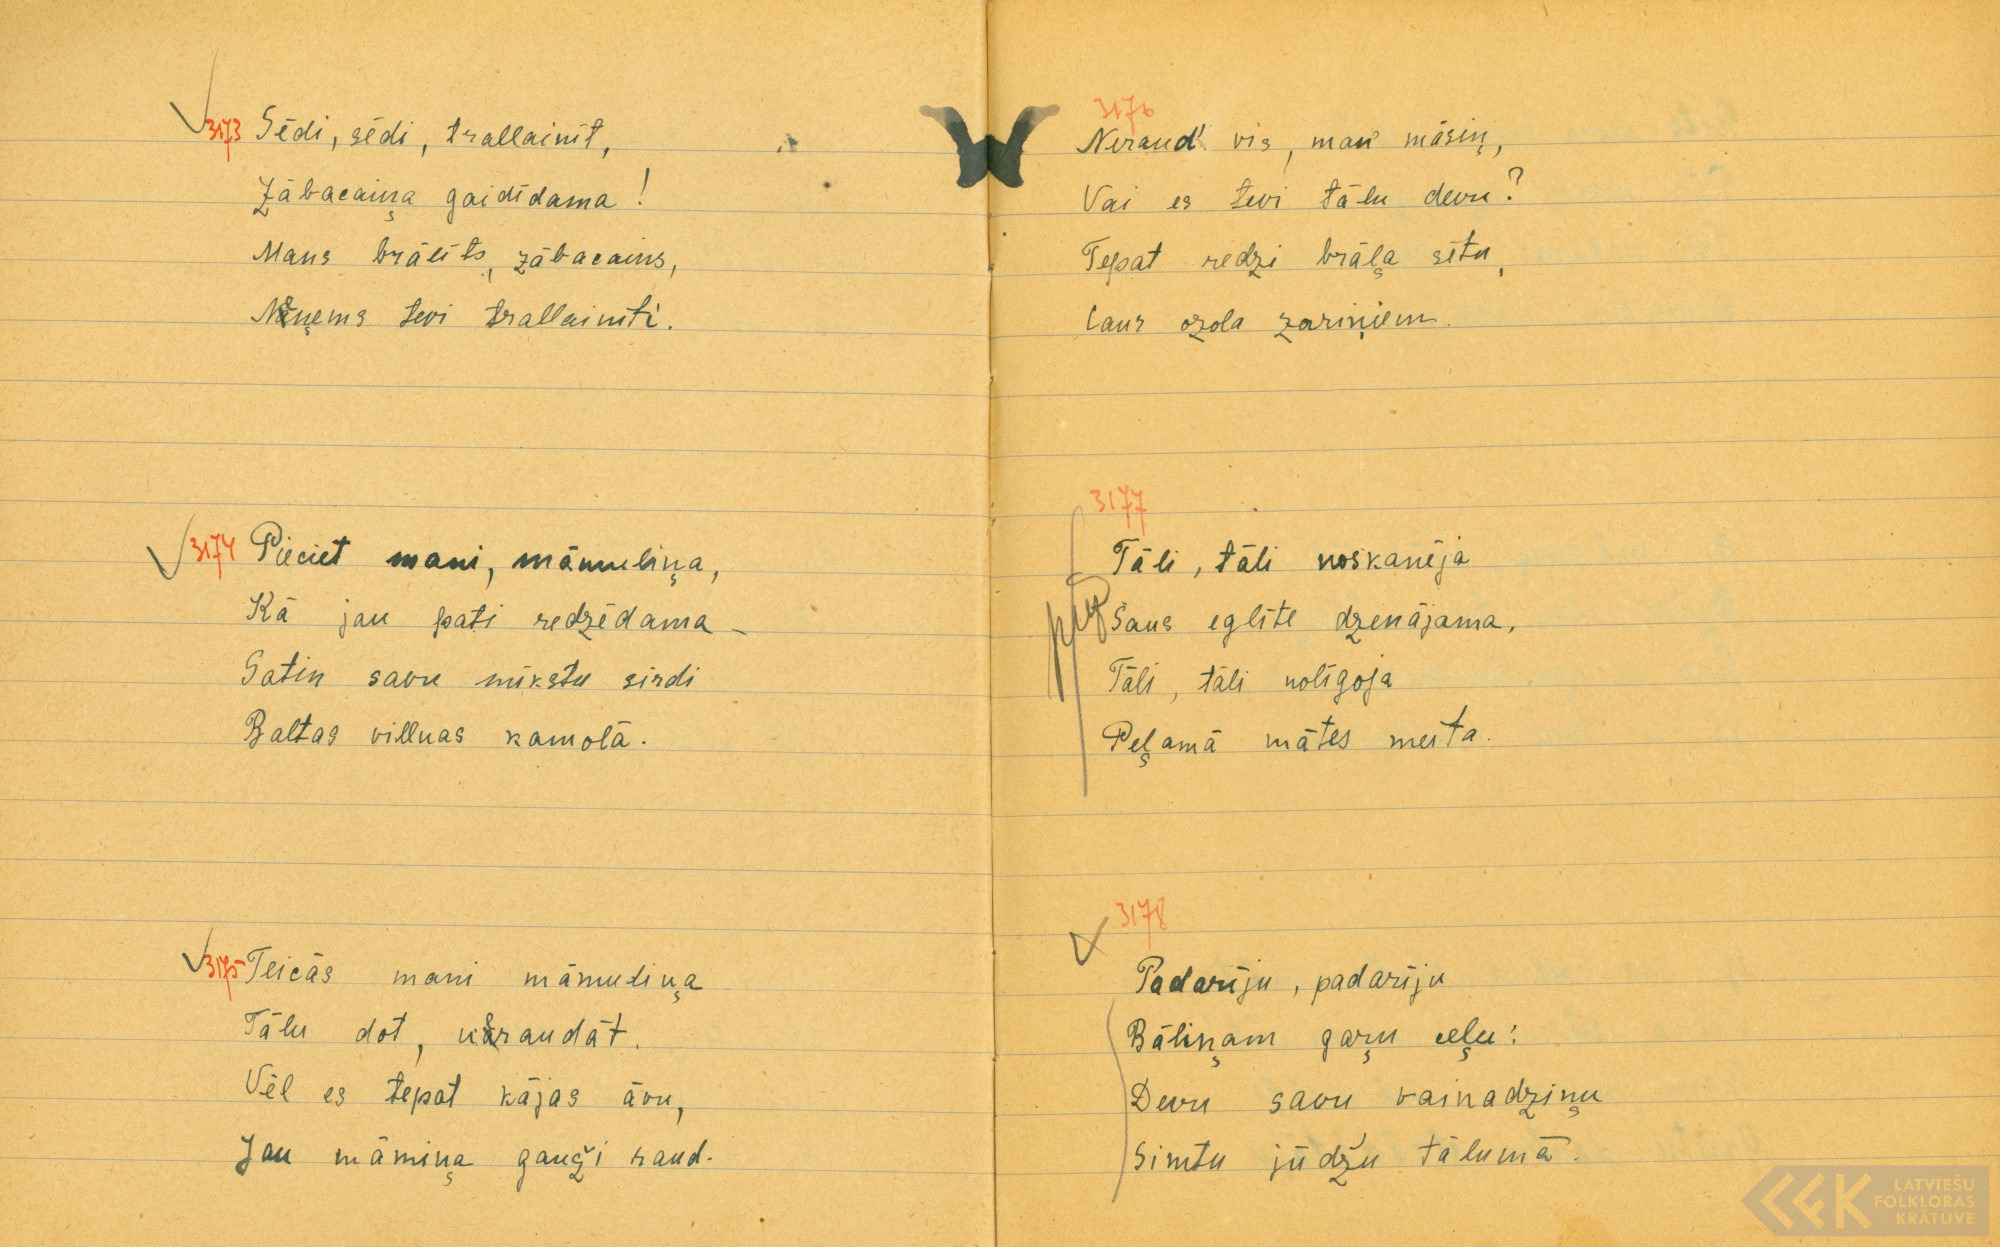 3173 Sēdi, sēdi, trallainīt,
Zābacaiņa gaidīdama!
Mans brālīts, zābacains,
Neņems tevi trallainīti.
3174 Pieciet mani, māmuliņa,
Kā jau pati redzēdama –
Satin savu mīkstu sirdi
Baltas villnas kamolā.
3175 Teicās mani māmuliņa
Tālu dot, neraudāt.
Vēl es tepat kājas āvu,
Jau māmiņa gauži raud.
3176
Neraud' vis, man' māsiņ,
Vai es tevi tālu devu?
Tepat redzi brāļa sētu,
Caur ozola zariņiem.
3177
Tāli, tāli noskanēja
Šaus eglīte dzenājama,
Tāli, tāli nolīgoja
Peļamā mātes meita.
3178
Padarīju, padarīju
Bāliņam gaŗu ceļu:
Devu savu vainadziņu
Simtu jūdžu tālumā.
LATVIEŠU
FOLKLORAS
KRĀTUVE